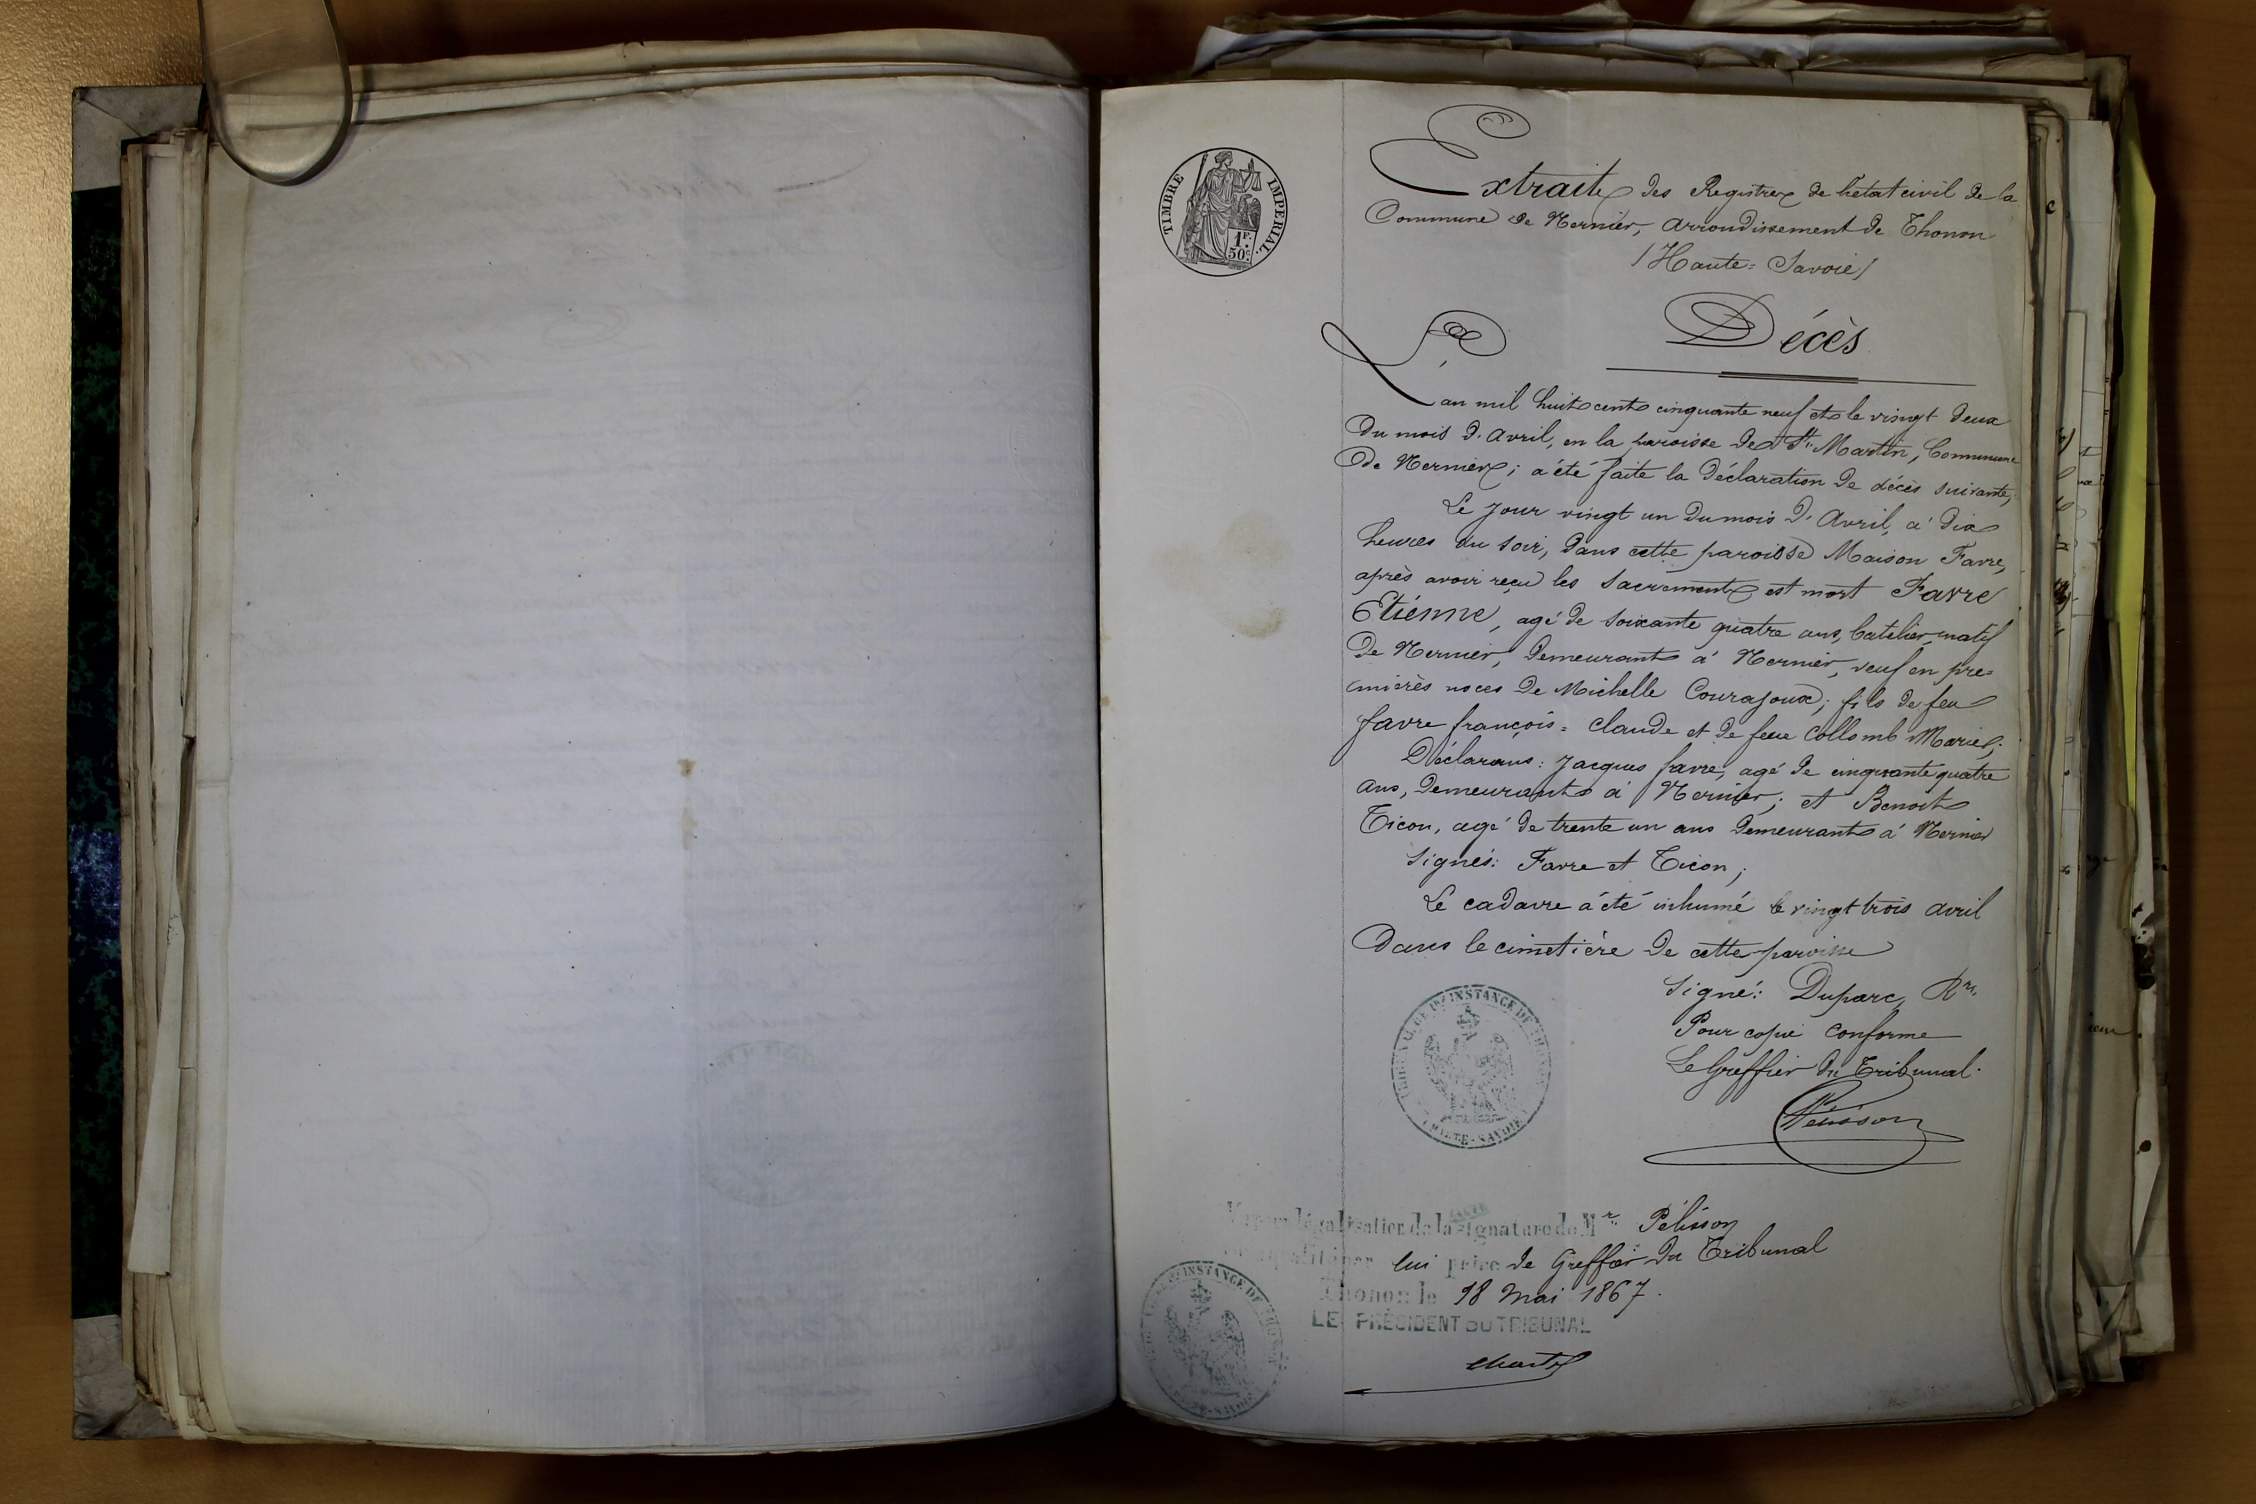 TIMBRE IMPERIAL
1F.
50c
Extraite des Registres de l'état civil de la
Commune de Nernier, arrondissement de Thonon
/Haute=Savoie/
Décès
L'an mil huit cent cinquante neuf et le vingt deux
du mois d'avril, en la paroisse de St. Martin, Commune
de Nernier; a été faite la déclaration de décès suivante;
Le jour vingt un du mois d'Avril, à dix
heures du soir, dans cette paroisse Maison Favre,
après avoir reçu les Sacrements est mort Favre
Etiénne, agé de soixante quatre ans, batelier, natif
de Nernier, demeurant à Nernier, veuf en pre=
mières noces de Michelle Courajoux; fils de feu
favre françois=Claude et de feue Collomb Marie;
Déclarans: Jacques favre, agé de cinquante quatre
ans, demeurant à Nernier; et Benoit
Ticon, agé de trente un ans demeurant à Nernier
Signés: Favre et Ticon;
Le cadavre a été inhumé le vingt trois avril
dans le cimetière de cette paroisse
Signé: Duparc, Rr.
Pour copie conforme
Le Greffier du Tribunal.
Pélisson
TRIBUNAL DE 1re INSTANCE DE THONON
HAUTE-SAVOIE
légalisation de la signature de Mr. Pélisson
lui prise de Greffier du Tribunal
Thonon le 18 Mai 1867.
LE PRÉSIDENT DU TRIBUNAL
INSTANCE DE THONON
SAVOIE